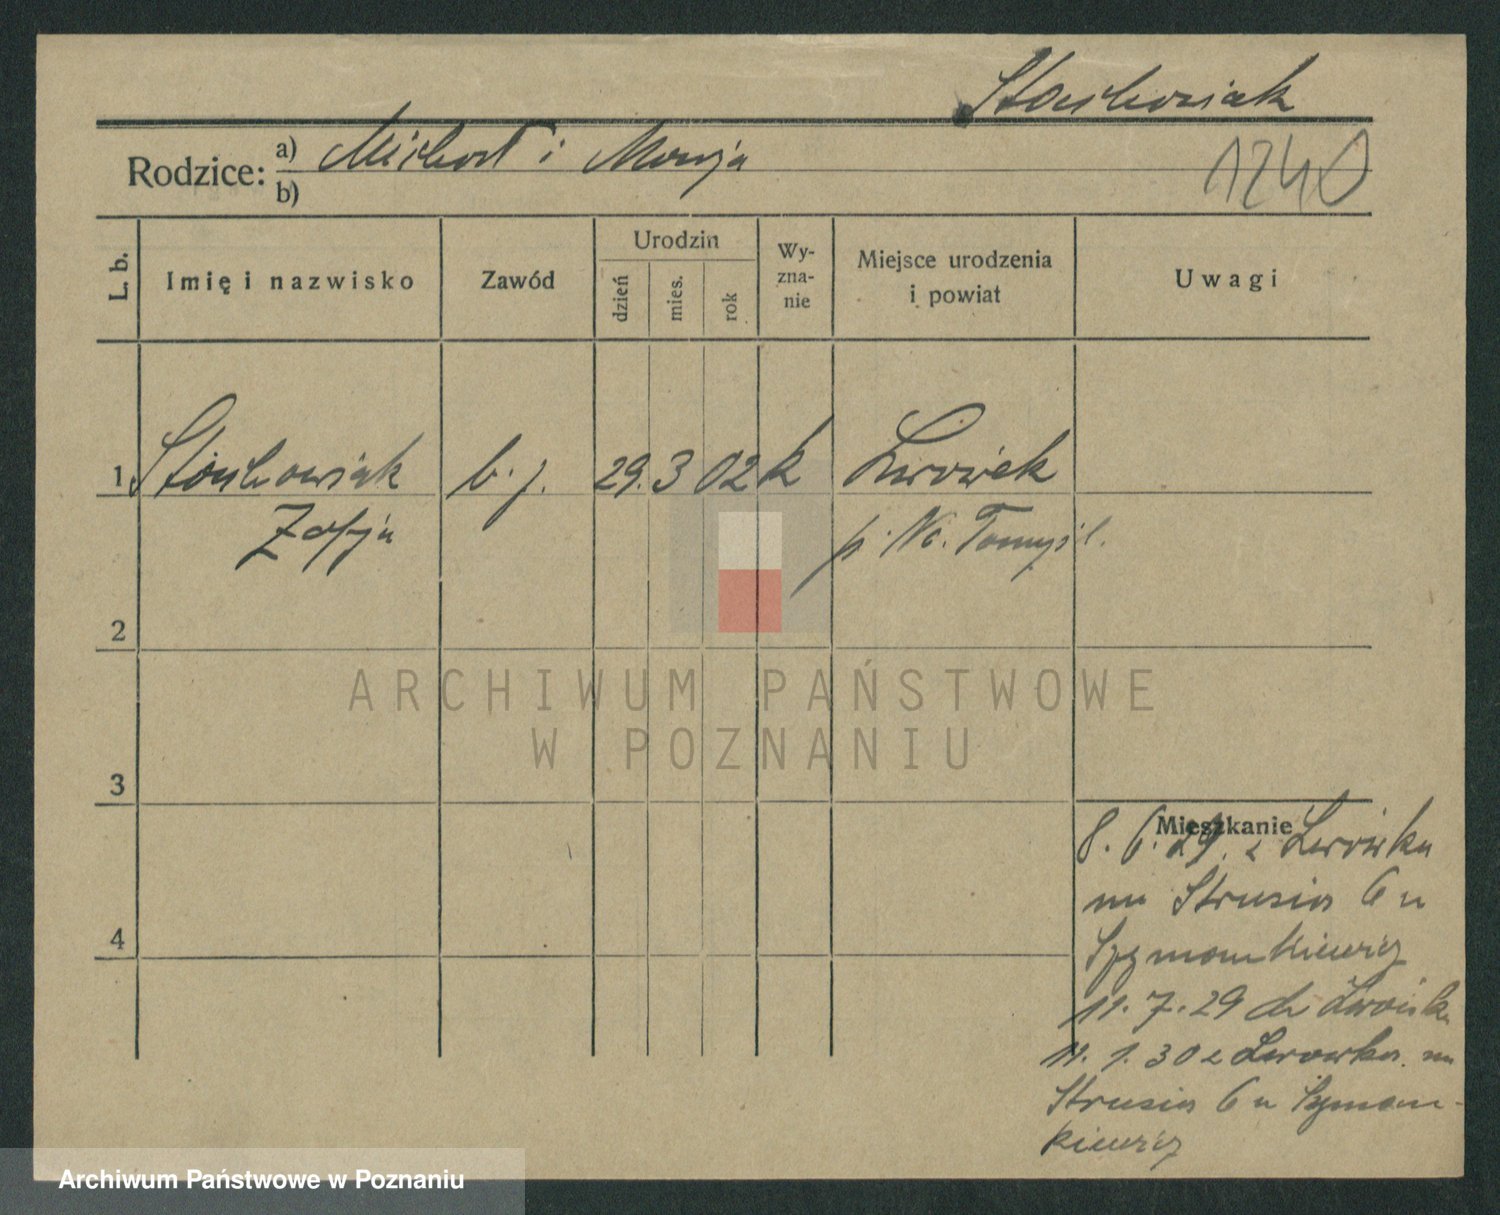 Stachowiak
Rodzice: a) Michał i Marja
b)
1240
L. b.
Imię i nazwisko
Zawód
Urodzin
dzień
mies.
rok
Wy-
zna-
nie
Miejsce urodzenia
i powiat
Uwagi
1 Stachowiak b. j. 29. 3 02 k Lwówek
Zofja p. No. Tomyśl.
2
3
4
Mieszkanie
8. 6. 29. z Lwówka
na Strusia 6 u
Szymankiewicz
11. 7. 29 do Lwówka
11. 1. 30 z Lwowka na
Strusia 6 u Szyman-
kiewicz
ARCHIWUM PAŃSTWOWE
W POZNANIU
Archiwum Państwowe w Poznaniu